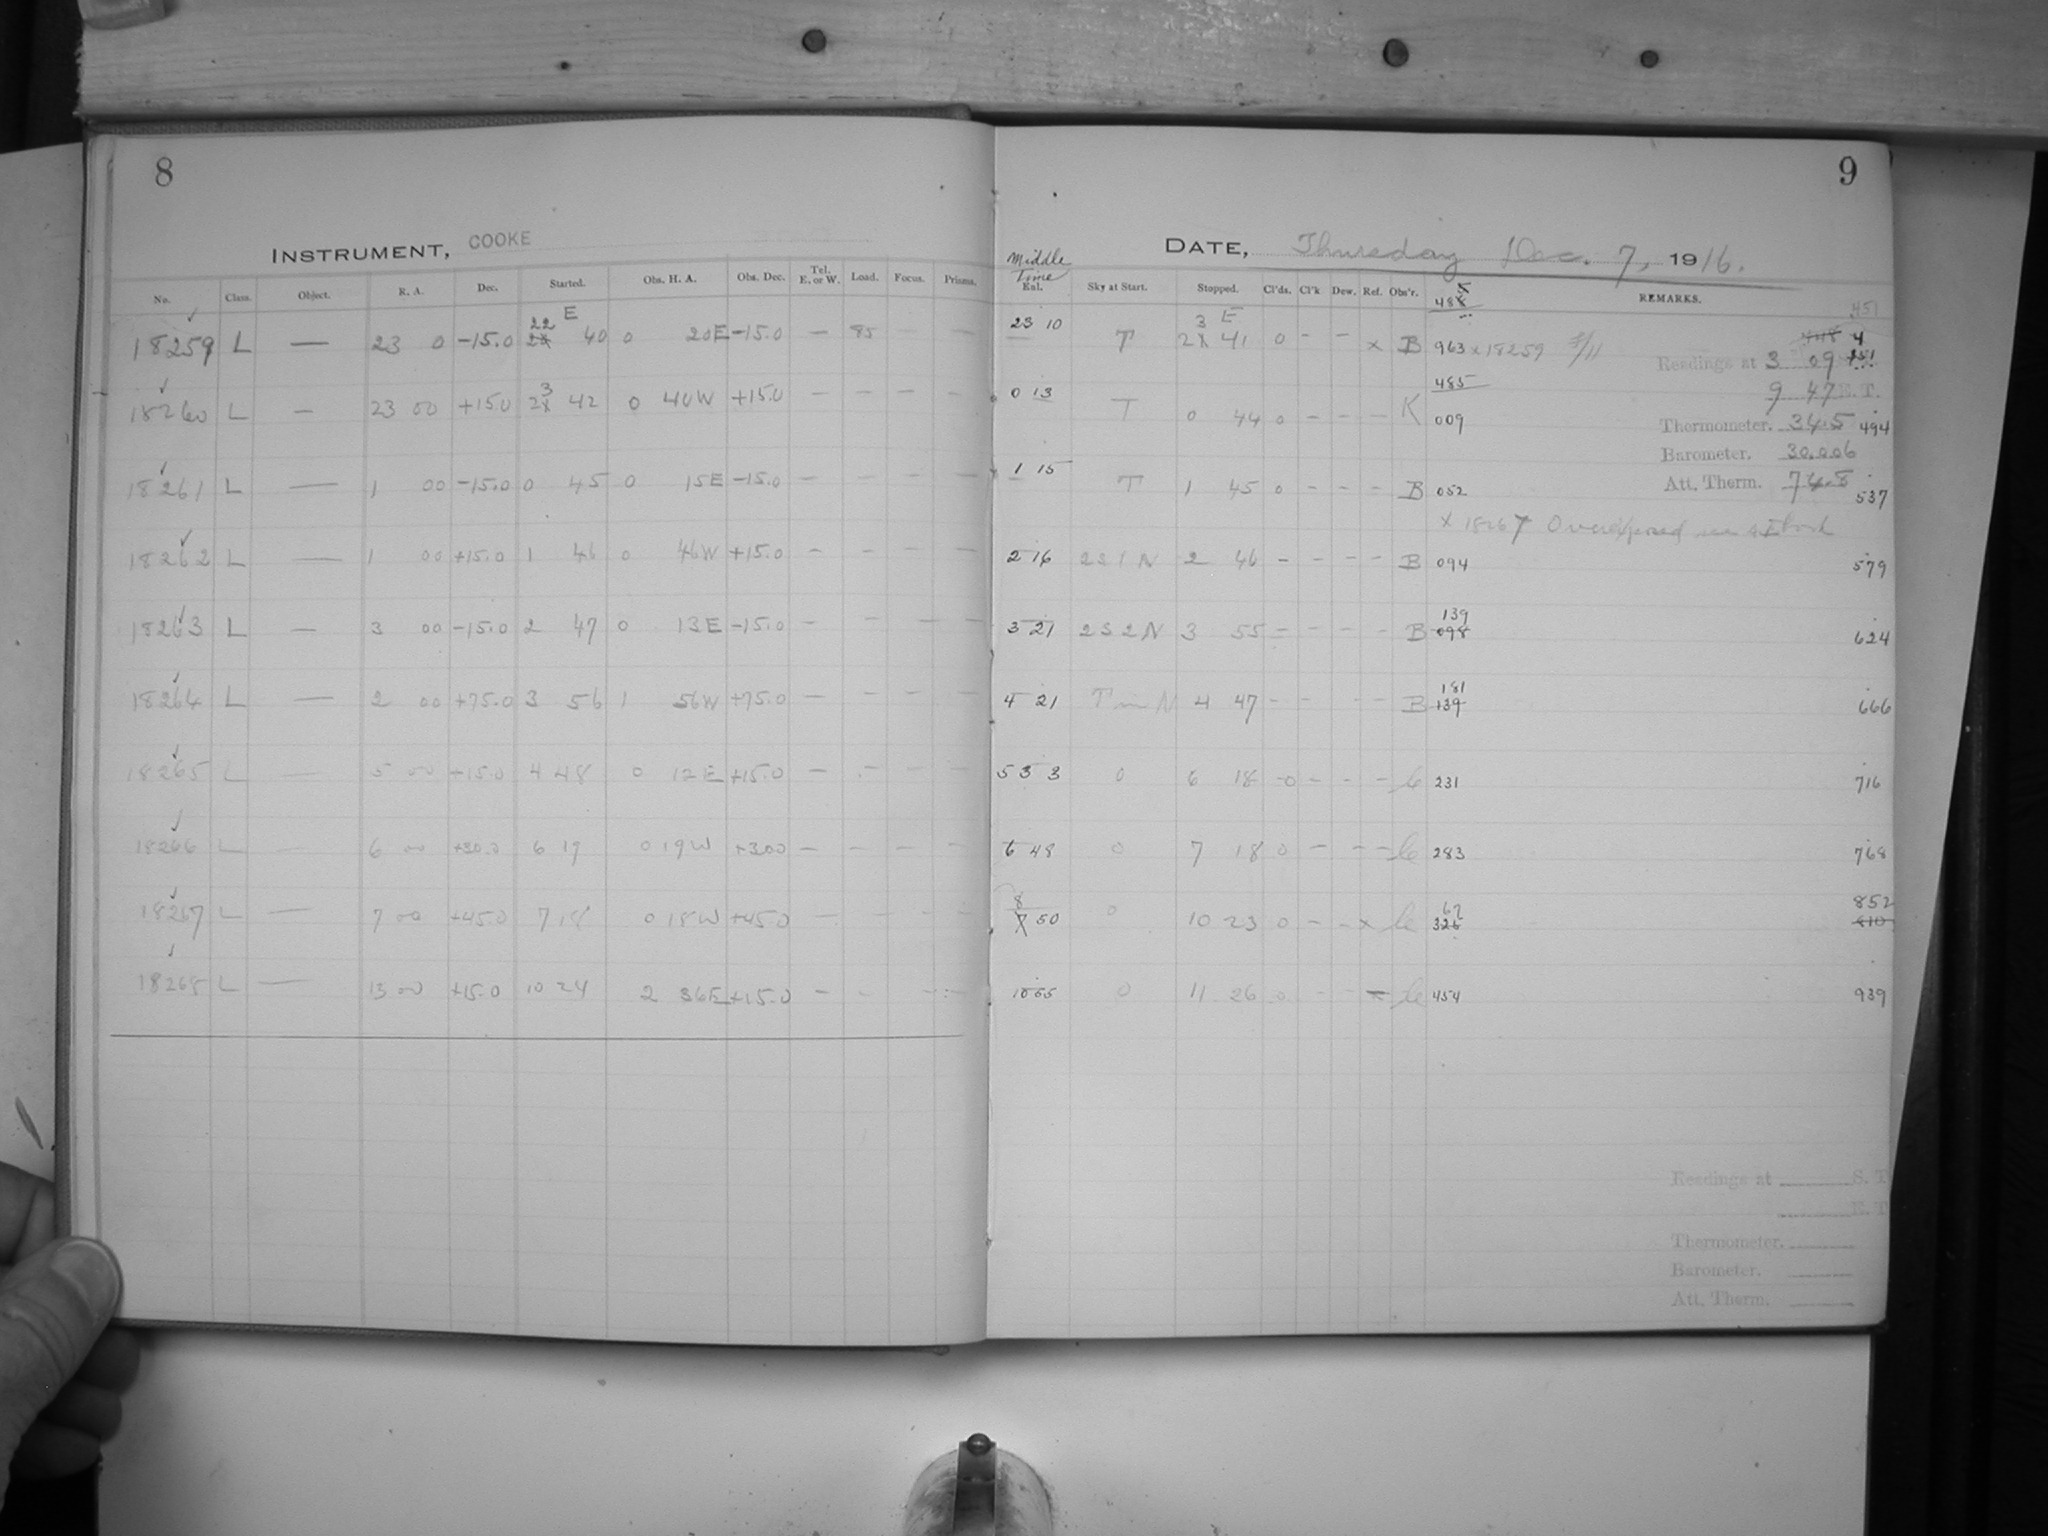 8
INSTRUMENT, COOKE
No. Class. Object. R. A. Dec. Started. Obs. H. A. Obs. Dec. Tel. E. or W. Load. Focus. Prisms.
18259 L — 23 0 -15.0 22 E 40 0 20E -15.0 — 85 — —
18260 L — 23 00 +15.0 23 42 0 40W +15.0 — — — —
18261 L — 1 00 -15.0 0 45 0 15E -15.0 — — — —
18262 L — 1 00 +15.0 1 46 0 46W +15.0 — — — —
18263 L — 3 00 -15.0 2 47 0 13E -15.0 — — — —
18264 L — 2 00 +75.0 3 56 1 56W +75.0 — — — —
18265 L — 5 00 +15.0 4 48 0 12E +15.0 — — — —
18266 L — 6 00 +30.0 6 19 0 19W +300 — — — —
18267 L — 7 00 +45.0 7 18 0 18W +45.0 — — — —
18268 L — 13 00 +15.0 10 24 2 36E +15.0 — — — —
9
DATE, Thursday Dec. 7, 1916.
Middle Time
Enl. Sky at Start. Stopped. Cl'ds. Cl'k Dew. Ref. Obs'r. REMARKS.
485
451
23 10 T 23 E 41 0 - - x B 963 x 18259
Readings at 3 09
9 47 E. T.
485
0 13 T 0 44 0 - - - K 009
Thermometer. 34.5 494
Barometer. 30.006
Att. Therm. 74.8
1 15 T 1 45 0 - - - B 052 537
x 18267 Overexposed
2 16 2 S 1 N 2 46 - - - - B 094 579
3 21 2 S 2 N 3 55 - - - - B 139 098 624
4 21 T in N 4 47 - - - - B 181 139 666
5 33 0 6 18 0 - - - 231 716
6 48 0 7 18 0 - - - 283 768
8 50 0 10 23 0 - - x 67 326 852 810
10 55 0 11 26 0 - - 454 939
Readings at S. T.
E. T.
Thermometer.
Barometer.
Att. Therm.